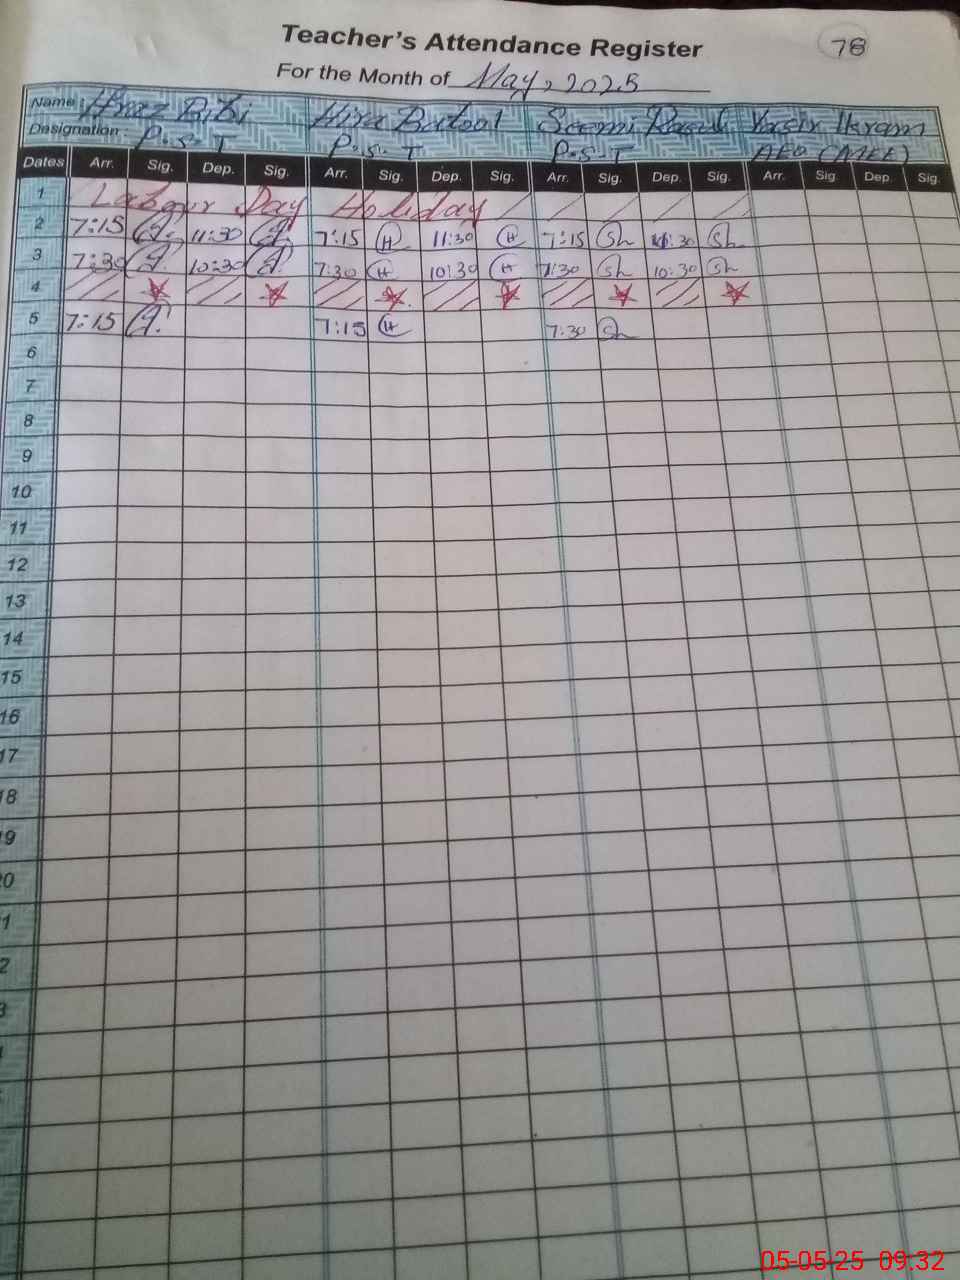 Teacher's Attendance Register
78
For the Month of May, 2025
Name: Bibi Hira Batool Yasir Ikram
Designation: P.S.T P.S.T P.S.T AEO (MEE)
Dates Arr. Sig. Dep. Sig. Arr. Sig. Dep. Sig. Arr. Sig. Dep. Sig. Arr. Sig. Dep. Sig.
1 Labour Day Holiday
2 7:15 11:30 7:15 H 11:30 H 7:15 Sh 11:30 Sh
3 7:30 10:30 7:30 H 10:30 H 7:30 Sh 10:30 Sh
4
5 7:15 7:15 H 7:30 Sh
6
7
8
9
10
11
12
13
14
15
16
17
18
9
0
1
2
3
05-05-25 09:32